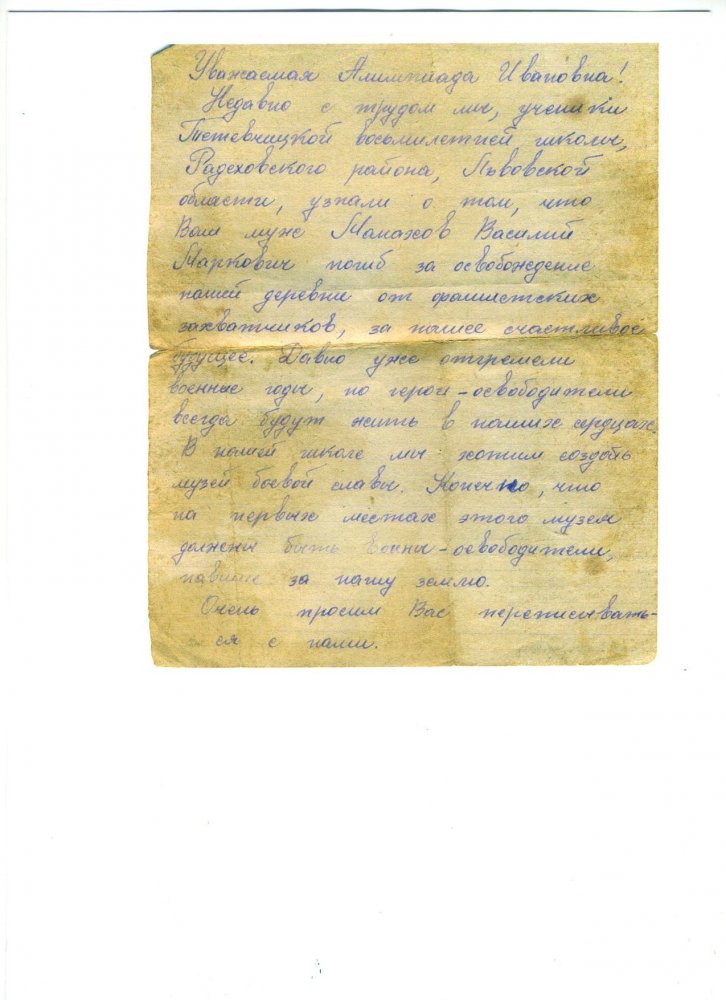 Уважаемая Алимпиада Ивановна!
Недавно с трудом мы, ученики
Тетевчицкой восьмилетней школы,
Радеховского района, Львовской
области, узнали о том, что
Ваш муж Манахов Василий
Маркович погиб за освобождение
нашей деревни от фашистских
захватчиков, за нашее счастливое
будущее. Давно уже отгремели
военные годы, но герои-освободители
всегда будут жить в наших сердцах.
В нашей школе мы хотим создать
музей боевой славы. Конечно, что
на первых местах этого музея
должны быть воины-освободители,
павшие за нашу землю.
Очень просим Вас переписывать-
ся с нами.